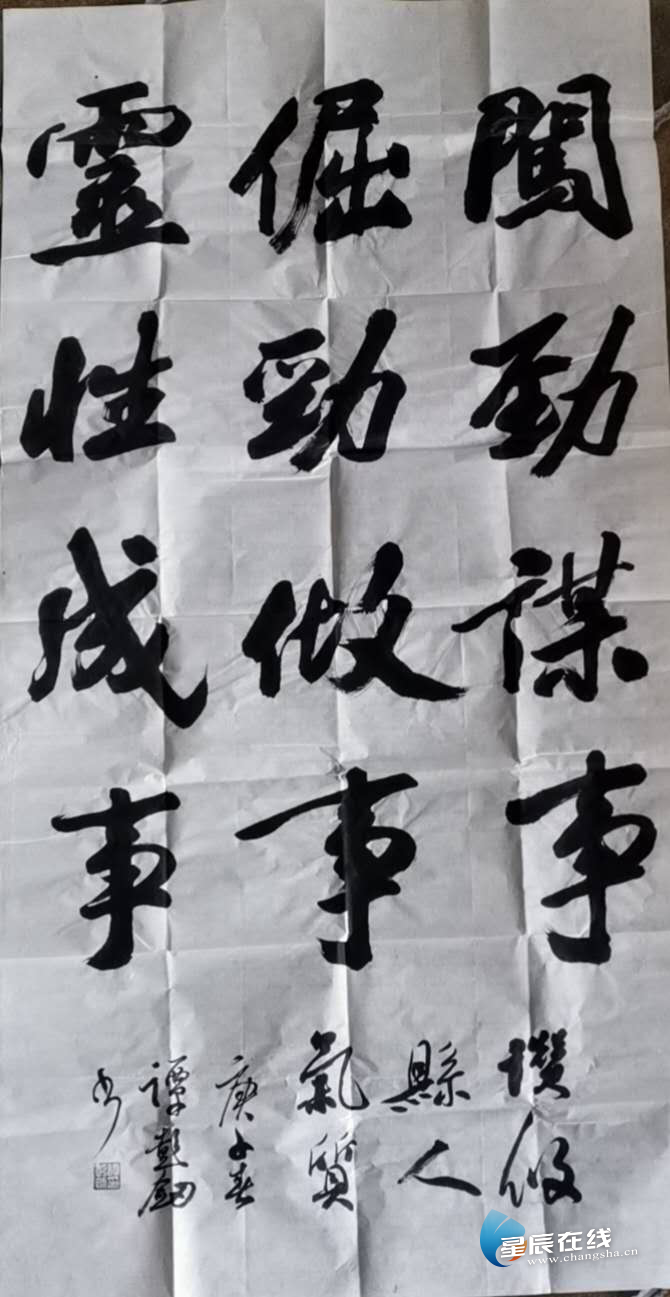 闖劲謀事
倔勁做事
靈性成事
攢攸
縣人
氣質
庚子春
譚彭劒
书
星辰在线
www.changsha.cn